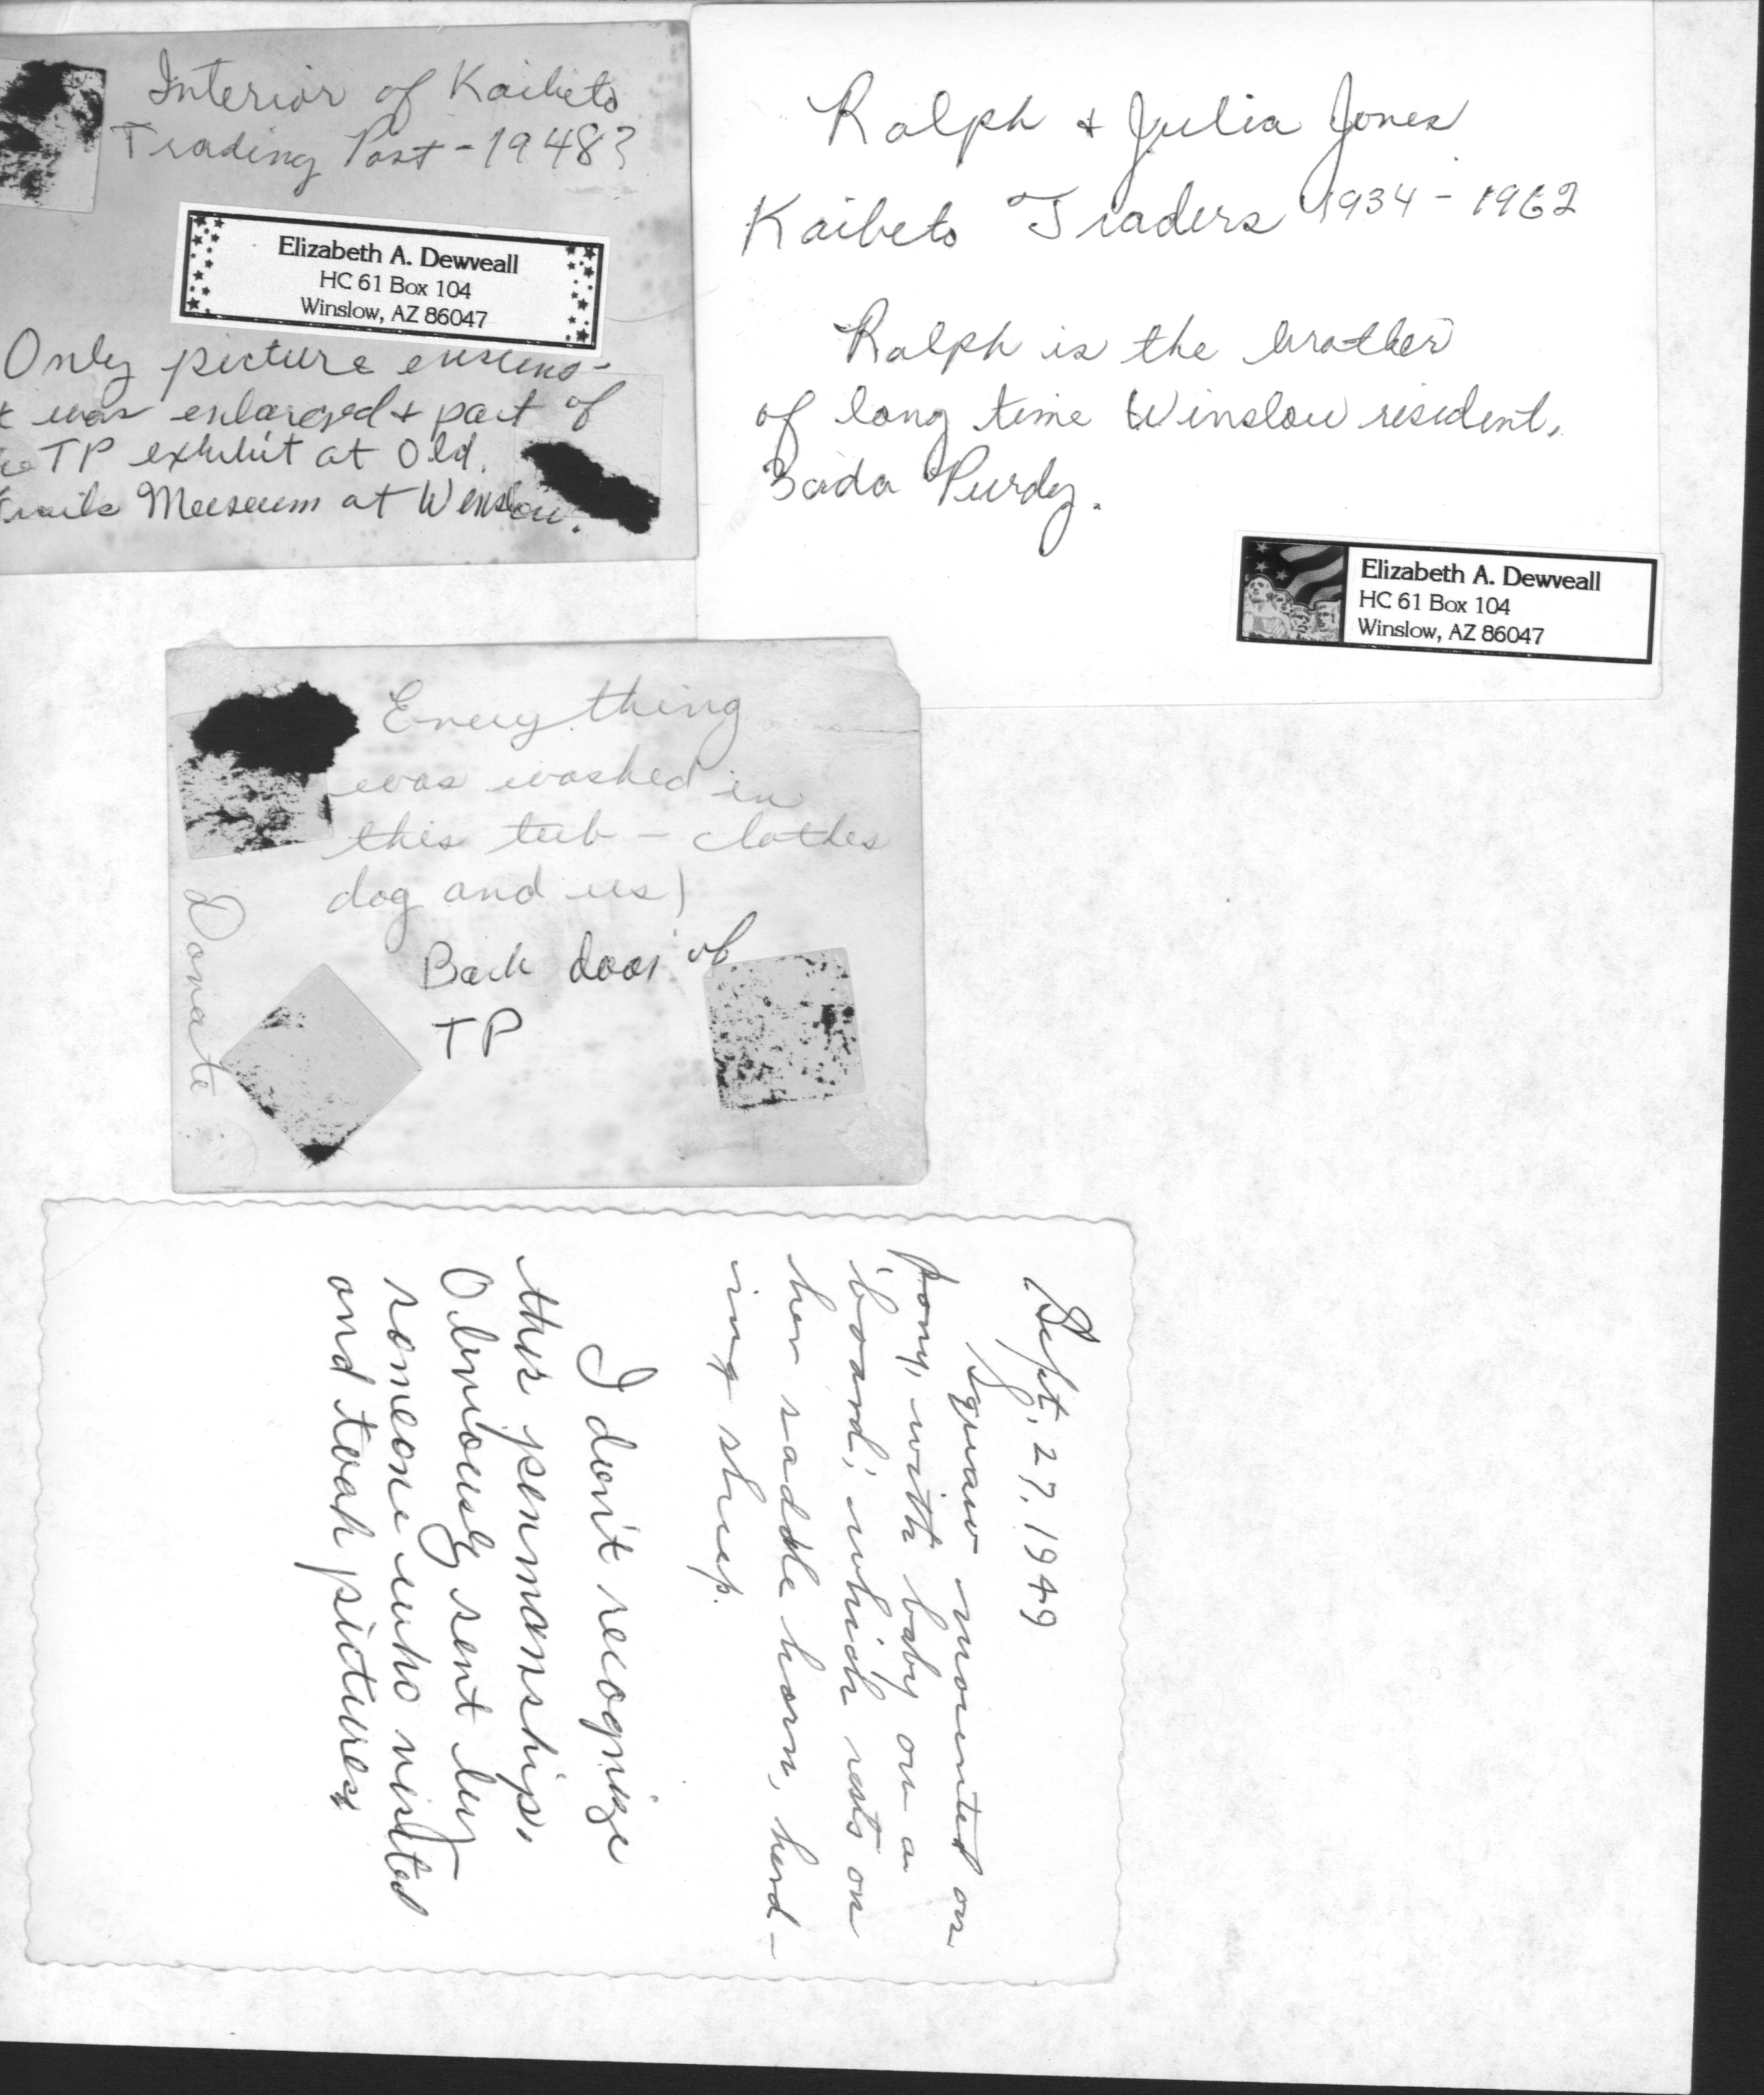 Interior of Kaibeto
Trading Post - 1948?
Elizabeth A. Dewveall
HC 61 Box 104
Winslow, AZ 86047
Only picture
was enlarged & part of
TP exhibit at Old
Museum at Winslow.
Ralph & Julia Jones
Kaibeto Traders 1934 - 1962
Ralph is the brother
of long time Winslow resident,
Purdy.
Elizabeth A. Dewveall
HC 61 Box 104
Winslow, AZ 86047
Every thing
was washed in
this tub - clothes
dog and us!
Back door of
TP
Donate
Sept. 27, 1949
Squaw mounted on
pony, with baby on a
board; which rests on
her saddle horn, herd-
ing sheep.
I don't recognize
this penmanship.
Obviously sent by
someone who visited
and took pictures